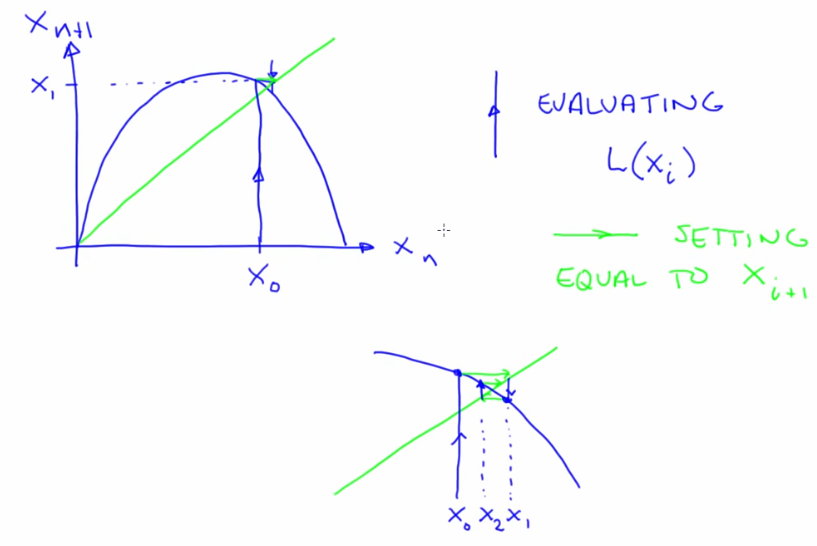 Xn+1
X1
Xn
X0
EVALUATING
L(Xi)
SETTING
EQUAL TO Xi+1
X0 X2 X1